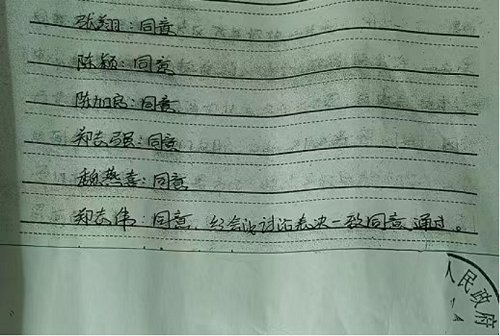 张翔：同意
陈颖：同意
陈加良：同意
郑志强：同意
魏燕喜：同意
郑志伟：同意，经会议讨论表决一致同意通过。
人民政府